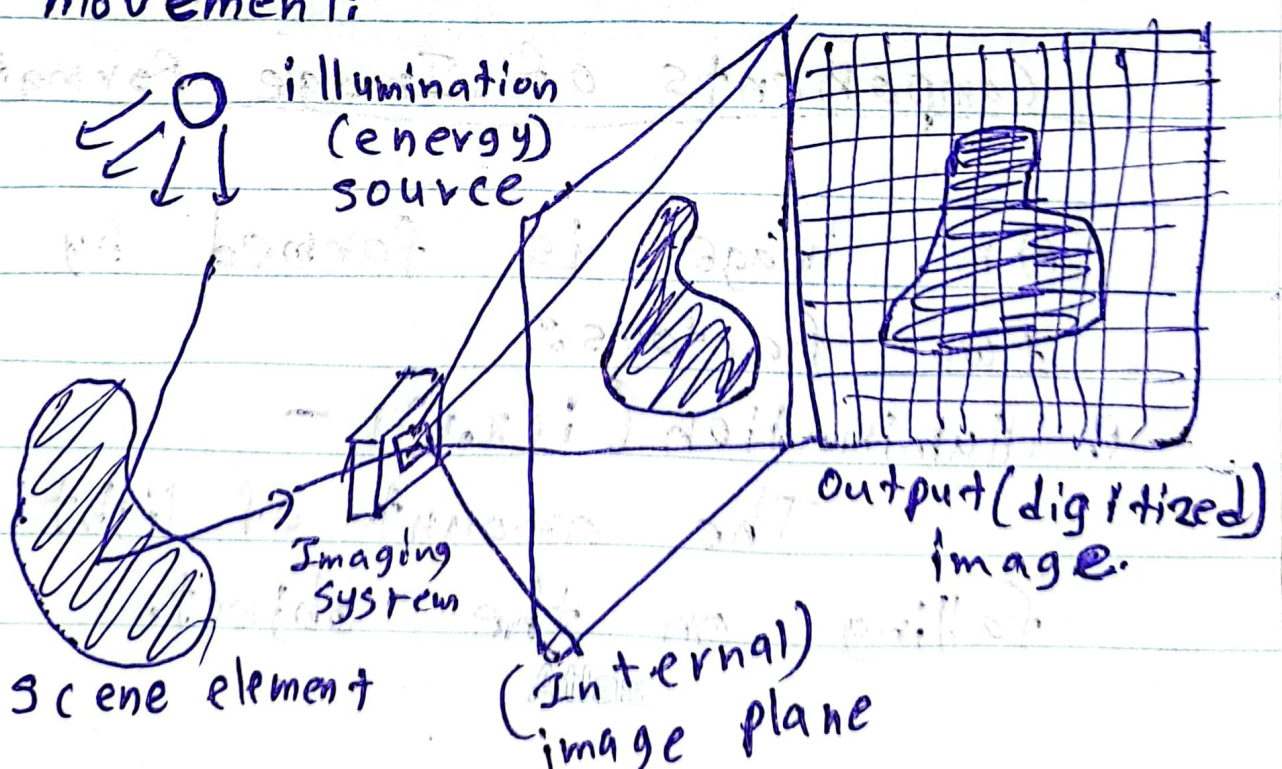 movement.
illumination
(energy)
source
Imaging
system
Output (digitized)
image.
scene element
(Internal)
image plane